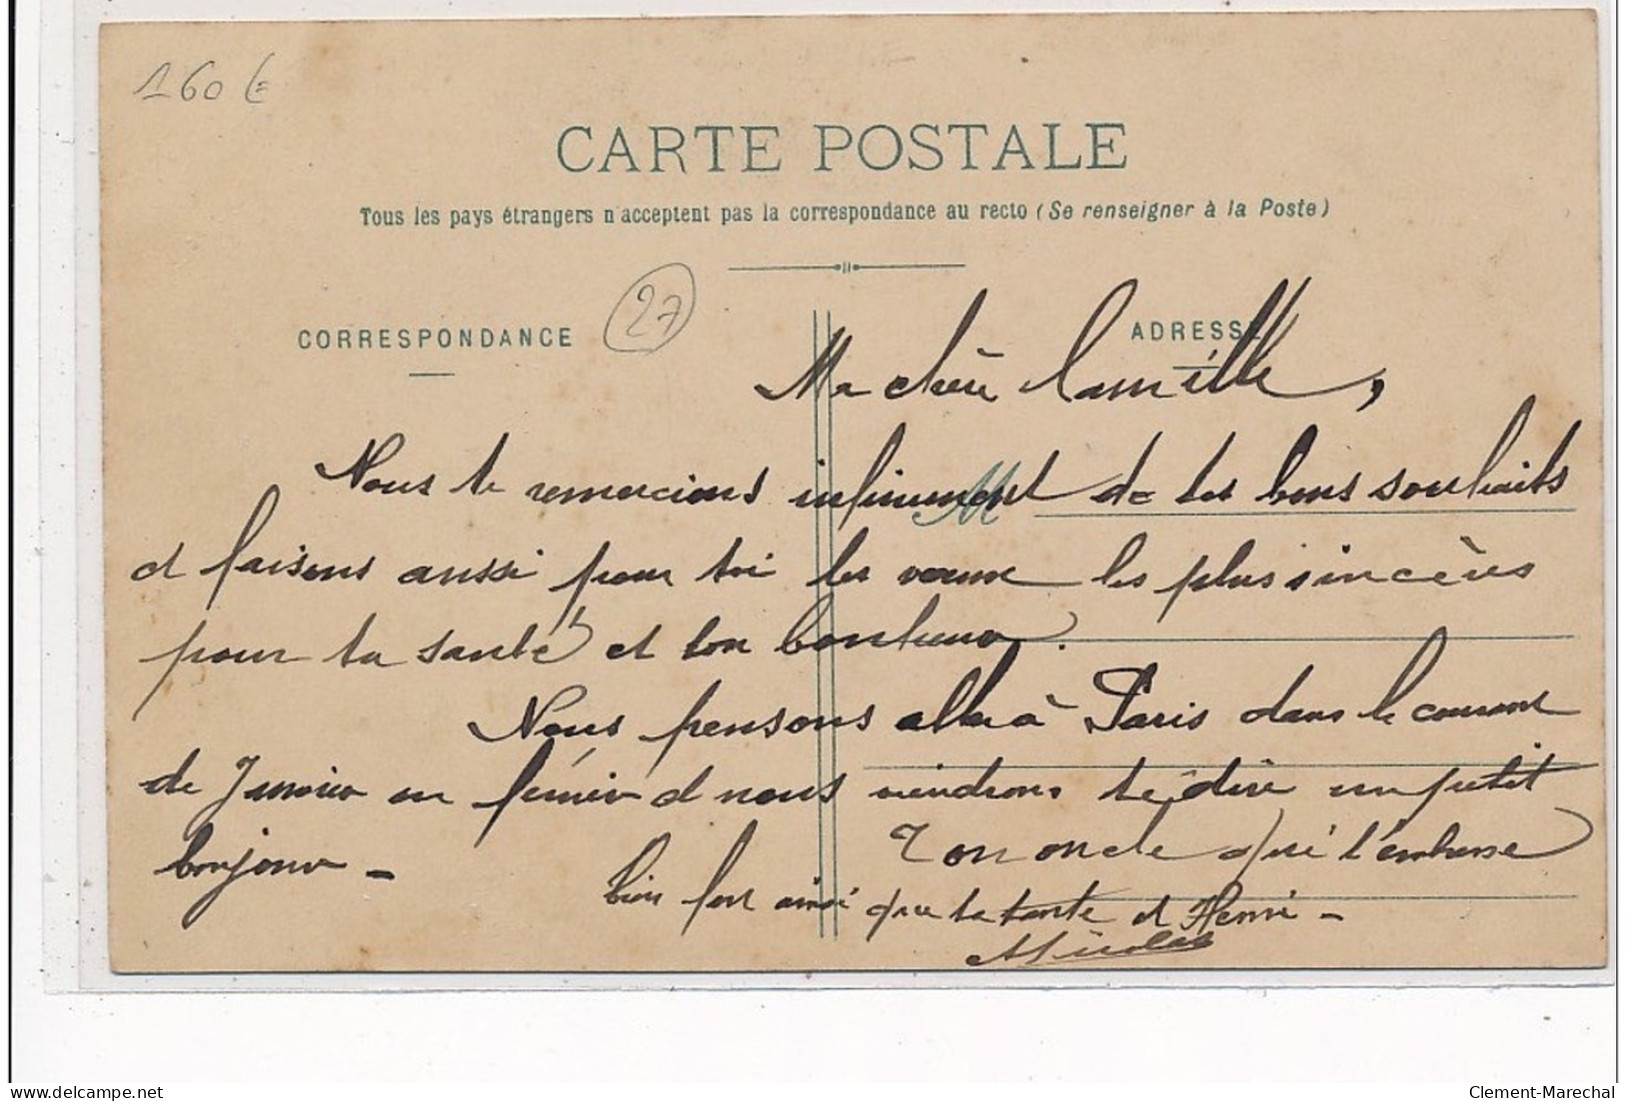 160 €
CARTE POSTALE
Tous les pays étrangers n'acceptent pas la correspondance au recto (Se renseigner à la Poste)
27
CORRESPONDANCE
ADRESSE
Ma chère Camille,
M
Nous te remercions infiniment de tes bons souhaits
et faisons aussi pour toi les vœux les plus sincères
pour ta santé et ton bonheur.
Nous pensons aller à Paris dans le courant
de Janvier ou février et nous viendrons te dire un petit
bonjour -
Ton oncle qui t'embrasse
bien fort ainsi que ta tante et Henri -
Nicolas
delcampe.net
Clement-Marechal